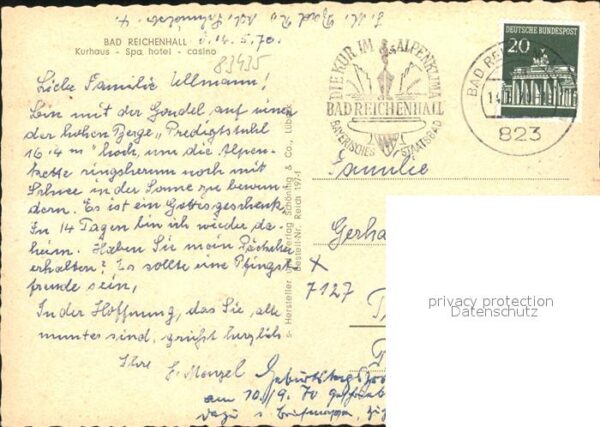 BAD REICHENHALL
Kurhaus - Spa hotel - casino
83435
Liebe Familie Ullmann!
Bin mit der Gondel auf einen
der hohen Berge "Predigtstuhl
1614 m" hoch, um die Alpen-
kette ringsherum noch mit
Schnee in der Sonne zu bewun-
dern. Es ist ein Gottesgeschenk.
In 14 Tagen bin ich wieder da-
heim. Haben Sie mein Päckchen
erhalten? Es sollte eine Pfingst-
freude sein,
In der Hoffnung, das Sie, alle
munter sind, grüßt herzlich
Ihre
Menzel
am 10./9. 70
dazu
Hersteller und Verlag Schöning & Co., Lübeck
Bestell-Nr. Reich
DIE KUR IM ALPENKLIMA
BAD REICHENHALL
BAYERISCHES STAATSBAD
DEUTSCHE BUNDESPOST
20
BAD
823
Familie
Gerha
7127
privacy protection
Datenschutz